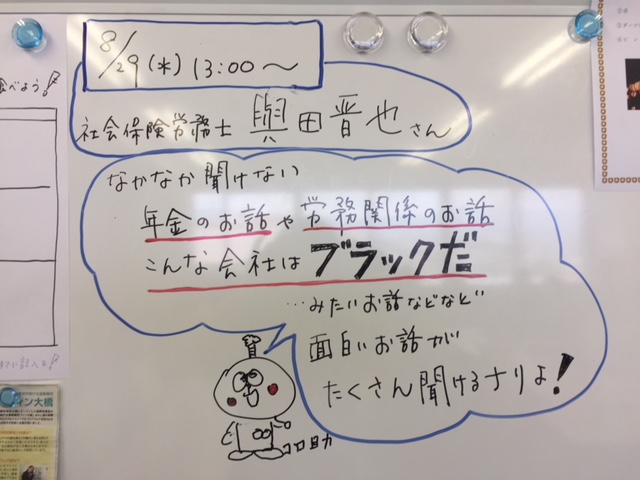 8/29(水) 13:00～
社会保険労務士 與田晋也さん
なかなか聞けない
年金のお話や労務関係のお話
こんな会社はブラックだ
…みたいお話などなど
面白いお話が
たくさん聞けるナリよ!
コロ助
べよう!
ィン大橋